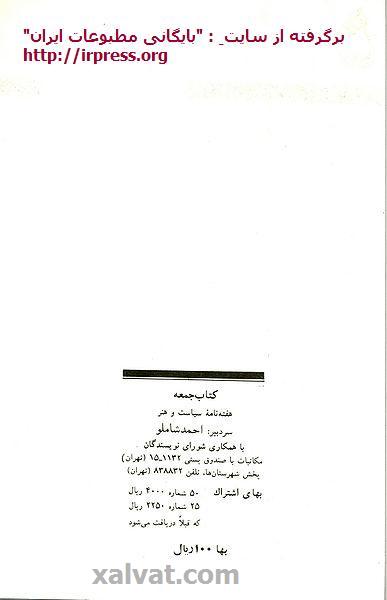 برگرفته از سایت : "بایگانی مطبوعات ایران"
http://irpress.org
کتاب جمعه
هفته‌نامهٔ سیاست و هنر
سردبیر: احمد شاملو
با همکاری شورای نویسندگان
مکاتبات با صندوق پستی ۱۱۳۲-۱۵ (تهران)
پخش شهرستان‌ها، تلفن ۸۳۸۸۳۲ (تهران)
بهای اشتراک ۵۰ شماره ۴۰۰۰ ریال
۲۵ شماره ۲۲۵۰ ریال
که قبلاً دریافت می‌شود
بها ۱۰۰ ریال
xalvat.com